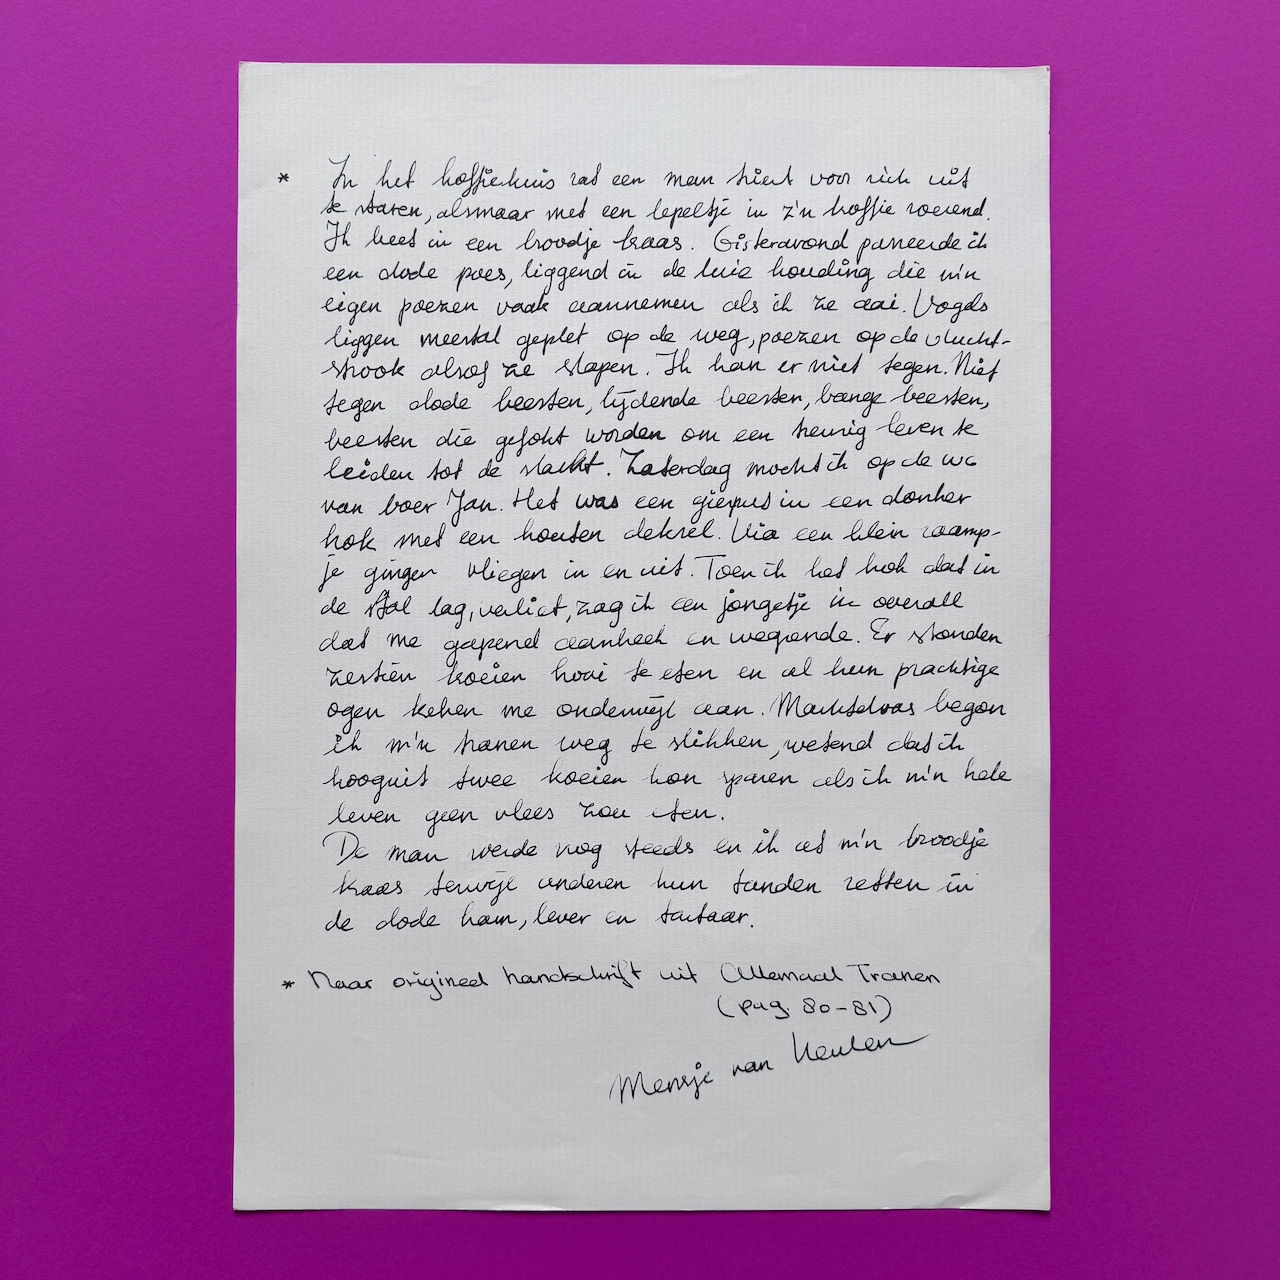 * In het koffiehuis zat een man triest voor zich uit
te staren, alsmaar met een lepeltje in z'n koffie roerend.
Ik beet in een broodje kaas. Gisteravond passeerde ik
een dode poes, liggend in de luie houding die m'n
eigen poezen vaak aannemen als ik ze aai. Vogels
liggen meestal geplet op de weg, poezen op de vlucht-
strook alsof ze slapen. Ik kan er niet tegen. Niet
tegen dode beesten, lijdende beesten, bange beesten,
beesten die gefokt worden om een treurig leven te
leiden tot de slacht. Zaterdag mocht ik op de wc
van boer Jan. Het was een gierput in een donker
hok met een houten deksel. Via een klein raamp-
je gingen vliegen in en uit. Toen ik het hok dat in
de stal lag, verliet, zag ik een jongetje in overall
dat me gapend aankeek en wegrende. Er stonden
zestien koeien hooi te eten en al hun prachtige
ogen keken me onderwijl aan. Machteloos begon
ik m'n tranen weg te slikken, wetend dat ik
hooguit twee koeien kon sparen als ik m'n hele
leven geen vlees zou eten.
De man roerde nog steeds en ik at m'n broodje
kaas terwijl anderen hun tanden zetten in
de dode ham, lever en tartaar.
* Naar origineel handschrift uit Allemaal Tranen
(pag. 80-81)
Mensje van Keulen